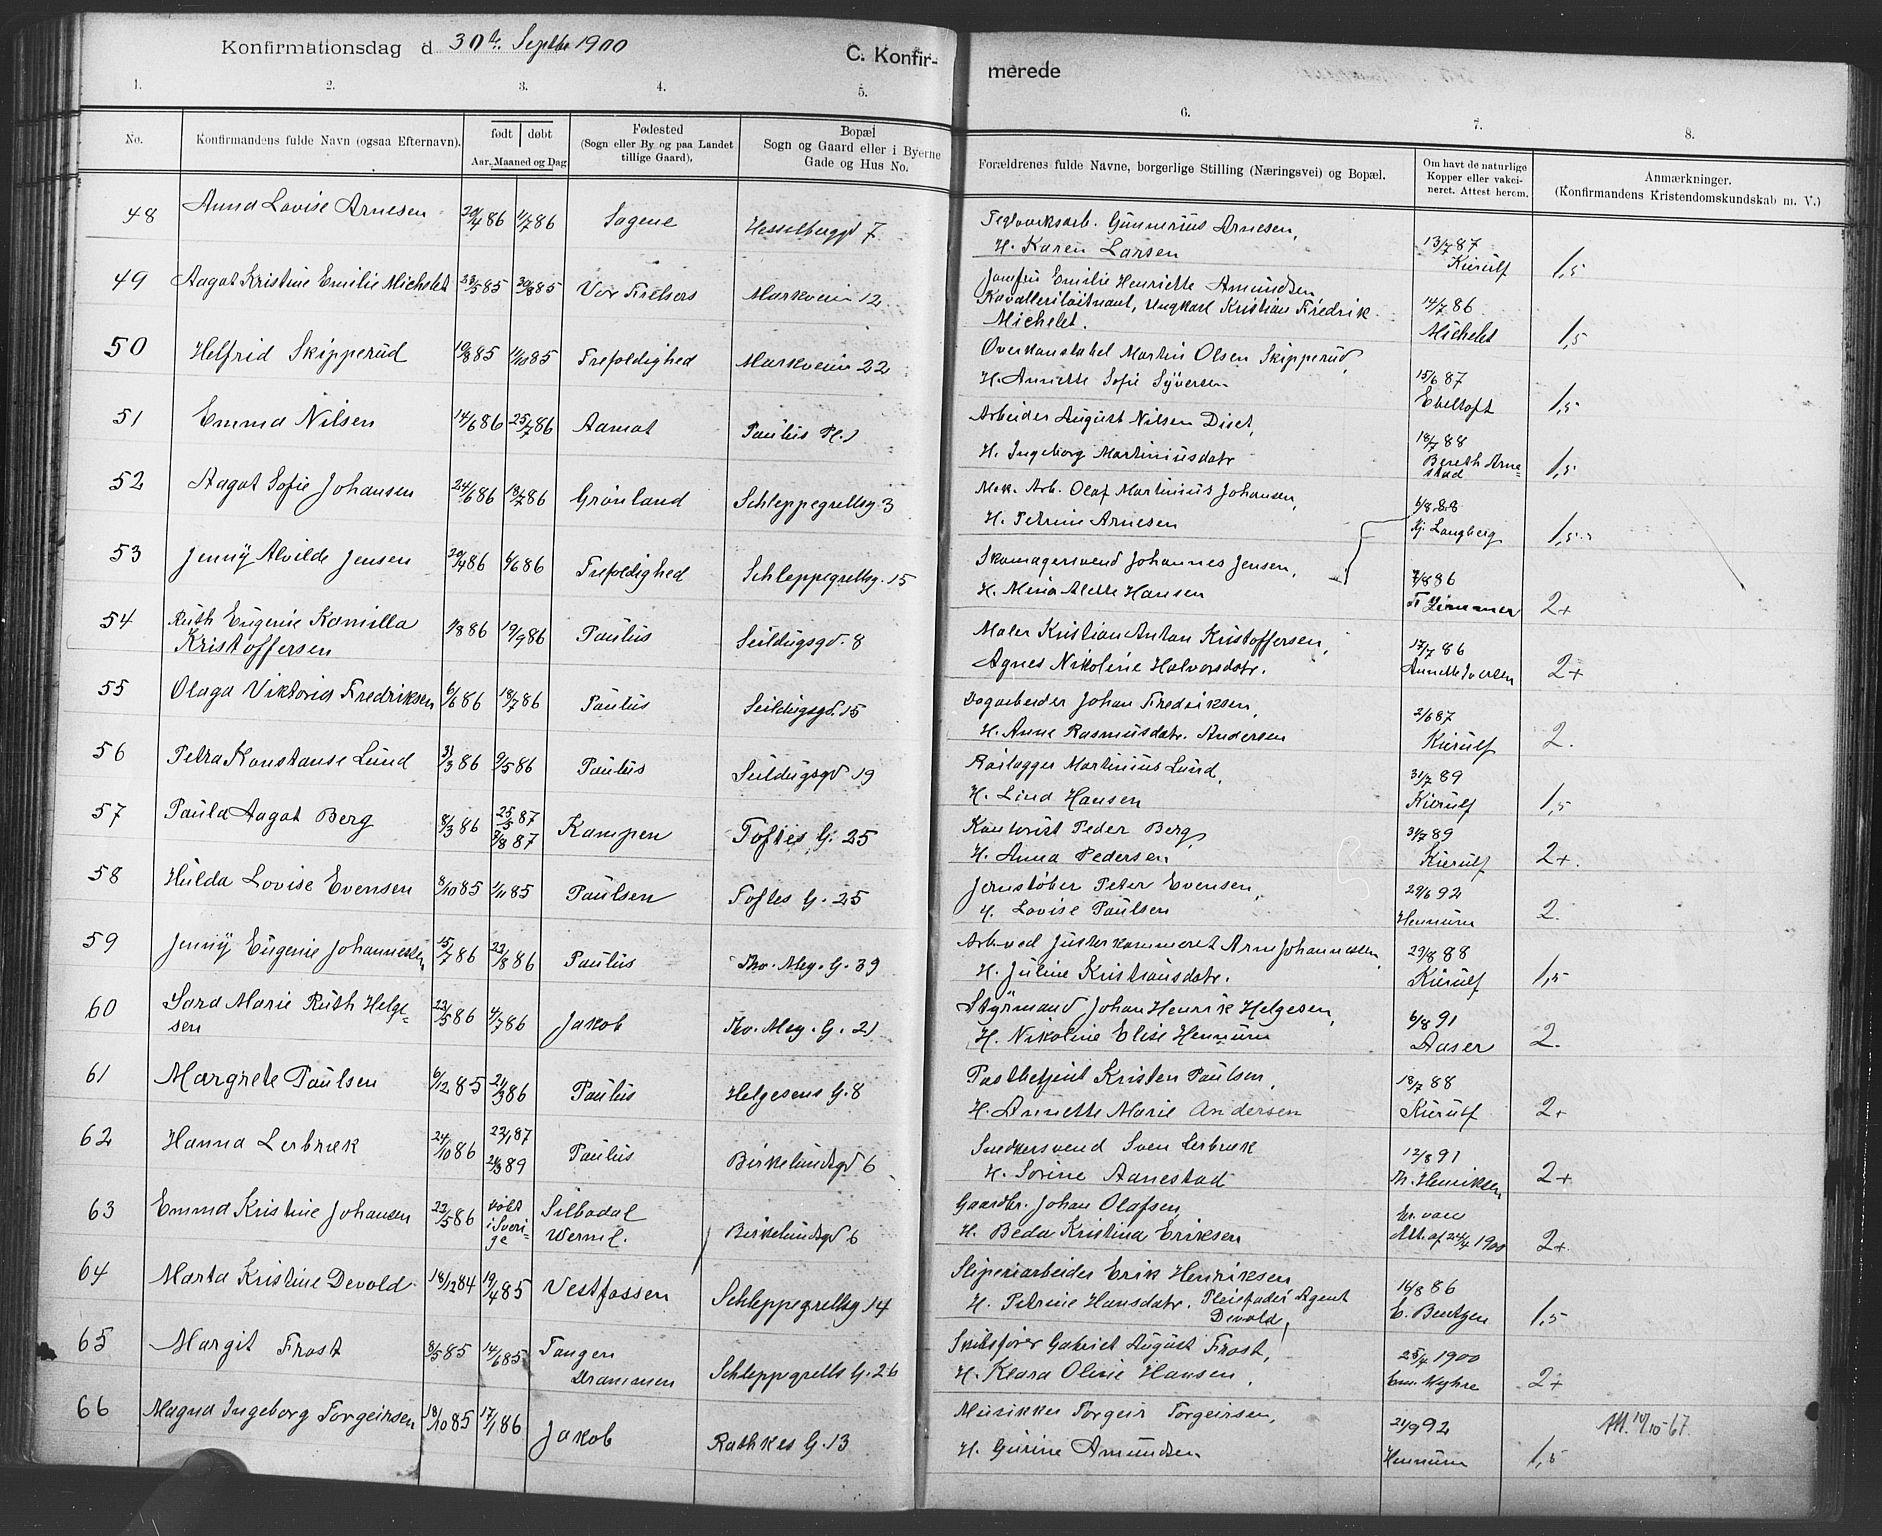 Konfirmationsdag d 30te Septbr 1900
C. Konfir-
merede
1. 2. 3. 4. 5. 6. 7. 8.
No.
Konfirmandens fulde Navn (ogsaa Efternavn).
født døbt
Aar, Maaned og Dag
Fødested
(Sogn eller By og paa Landet
tillige Gaard).
Bopæl
Sogn og Gaard eller i Byerne
Gade og Hus No.
Forældrenes fulde Navne, borgerlige Stilling (Næringsvei) og Bopæl.
Om havt de naturlige
Kopper eller vakci-
neret. Attest herom.
Anmærkninger.
(Konfirmandens Kristendomskundskab m. V.)
48 Anna Lovise Arnesen 20/4 86 11/7 86 Sagene Hesselbergsgd 7 Teglverksarb. Gunnerius Arnesen, 13/7 87
H. Karen Larsen Kierulf 1,5
49 Aagot Kristine Emilie Michelet 23/5 85 30/8 85 Vor Frelsers Markveien 12 Jomfru Emilie Henriette Amundsen
Kavalleriløitnant, Ungkarl Kristian Fredrik 14/7 86
Michelet. Michelet 1,5
50 Helfrid Skipperud 19/8 85 11/10 85 Trefoldighed Markveien 22 Overkonstabel Martin Olsen Skipperud, 15/6 87
H. Annette Sofie Syversen Ebeltoft 1,5
51 Emma Nilsen 14/6 86 25/7 86 Aamot Paulus Pl. 1 Arbeider August Nilsen Diset, 18/7 88
H. Ingeborg Martiniusdatr Bereth Arne-
stad 1,5
52 Aagot Sofie Johansen 24/6 86 18/7 86 Grønland Schleppegrellsg. 3 Mek. Arb. Olaf Martinius Johansen, 6/8 88
H. Petrine Arnesen Kj. Langberg 1,5
53 Jenny Alvilde Jensen 20/4 86 6/6 86 Trefoldighed Schleppegrellsg. 15 Skomagersvend Johannes Jensen, 7/8 86
H. Mina Alette Hansen Fr Zimmer 2+
54 Ruth Eugenie Kamilla 1/8 86 19/9 86 Paulus Seildugsgd. 8 Maler Kristian Anton Kristoffersen, 17/7 86
Kristoffersen Agnes Nikoline Halvorsdatr. Annette Iversen 2+
55 Olaga Viktoria Fredriksen 6/6 86 18/7 86 Paulus Seildugsgd. 15 Dagarbeider Johan Fredriksen, 2/6 87
H. Anne Rasmusdatr. Andersen Kierulf 2.
56 Petra Konstanse Lund 31/3 86 9/5 86 Paulus Seildugsgd 19 Rørlægger Martinius Lund, 31/7 89
H. Lina Hansen Kierulf 1,5
57 Paula Aagot Berg 8/3 86 25/5 87 Kampen Toftes G. 25 Kontorist Peder Berg, 31/7 89
7/8 87 H. Anna Pedersen Kierulf 2+.
58 Hilda Lovise Evensen 8/10 85 1/11 85 Paulsen Toftes G. 25 Jernstøber Peter Evensen, 29/6 92
H. Lovise Paulsen Hennum 2.
59 Jenny Eugenie Johannessen 15/7 86 22/8 86 Paulus Tho. Mey. G. 39 Arb. ved Justerkammeret Arne Johannessen, 29/8 88
H. Juline Kristiansdatr. Kierulf 1,5
60 Sara Marie Ruth Helge- 22/5 86 4/7 86 Jakob Tho. Mey. G. 21 Styrmand Johan Henrik Helgesen, 6/8 91
sen H. Nikoline Elise Hennum Aaser 2.
61 Margrete Paulsen 6/12 85 21/3 86 Paulus Helgesens G. 8 Postbetjent Kristen Paulsen, 18/7 88
H. Annette Marie Andersen Kierulf 2+
62 Hanna Lerbræk 24/10 86 23/1 87 Paulus Birkelundsgd 6 Snedkersvend Sven Lerbræk 12/8 91
24/3 89 H. Sorine Aanestad Th. Henriksen 2+
63 Emma Kristine Johansen 22/5 86 døbt Silbodal Birkelundsgd 6 Gaardbr. Johan Olafsen, Er vac
i Sveri- Werml. H. Beda Kristina Eriksen Att. af 24/4 1900 2+
ge
64 Marta Kristine Devold 18/12 84 19/4 85 Vestfossen Schleppegrellsg 14 Sliperiarbeider Erik Henriksen 16/8 86
H. Petrine Hansdatr. Pleiefader Agent E. Bentzen 1,5
Devold,
65 Margit Frost 8/5 85 14/6 85 Tangen Schleppegrells G. 26 Skibsfører Gabriel August Frost, 25/4 1900
Drammen H. Klara Oline Hansen, Em. Myhre 2+
66 Magna Ingeborg Torgeirsen 18/10 85 17/1 86 Jakob Rathkes G. 13 Musikker Torgeir Torgeirsen, 21/9 92 Att. 10/10-67.
H. Gurine Amundsen Hennum 1,5